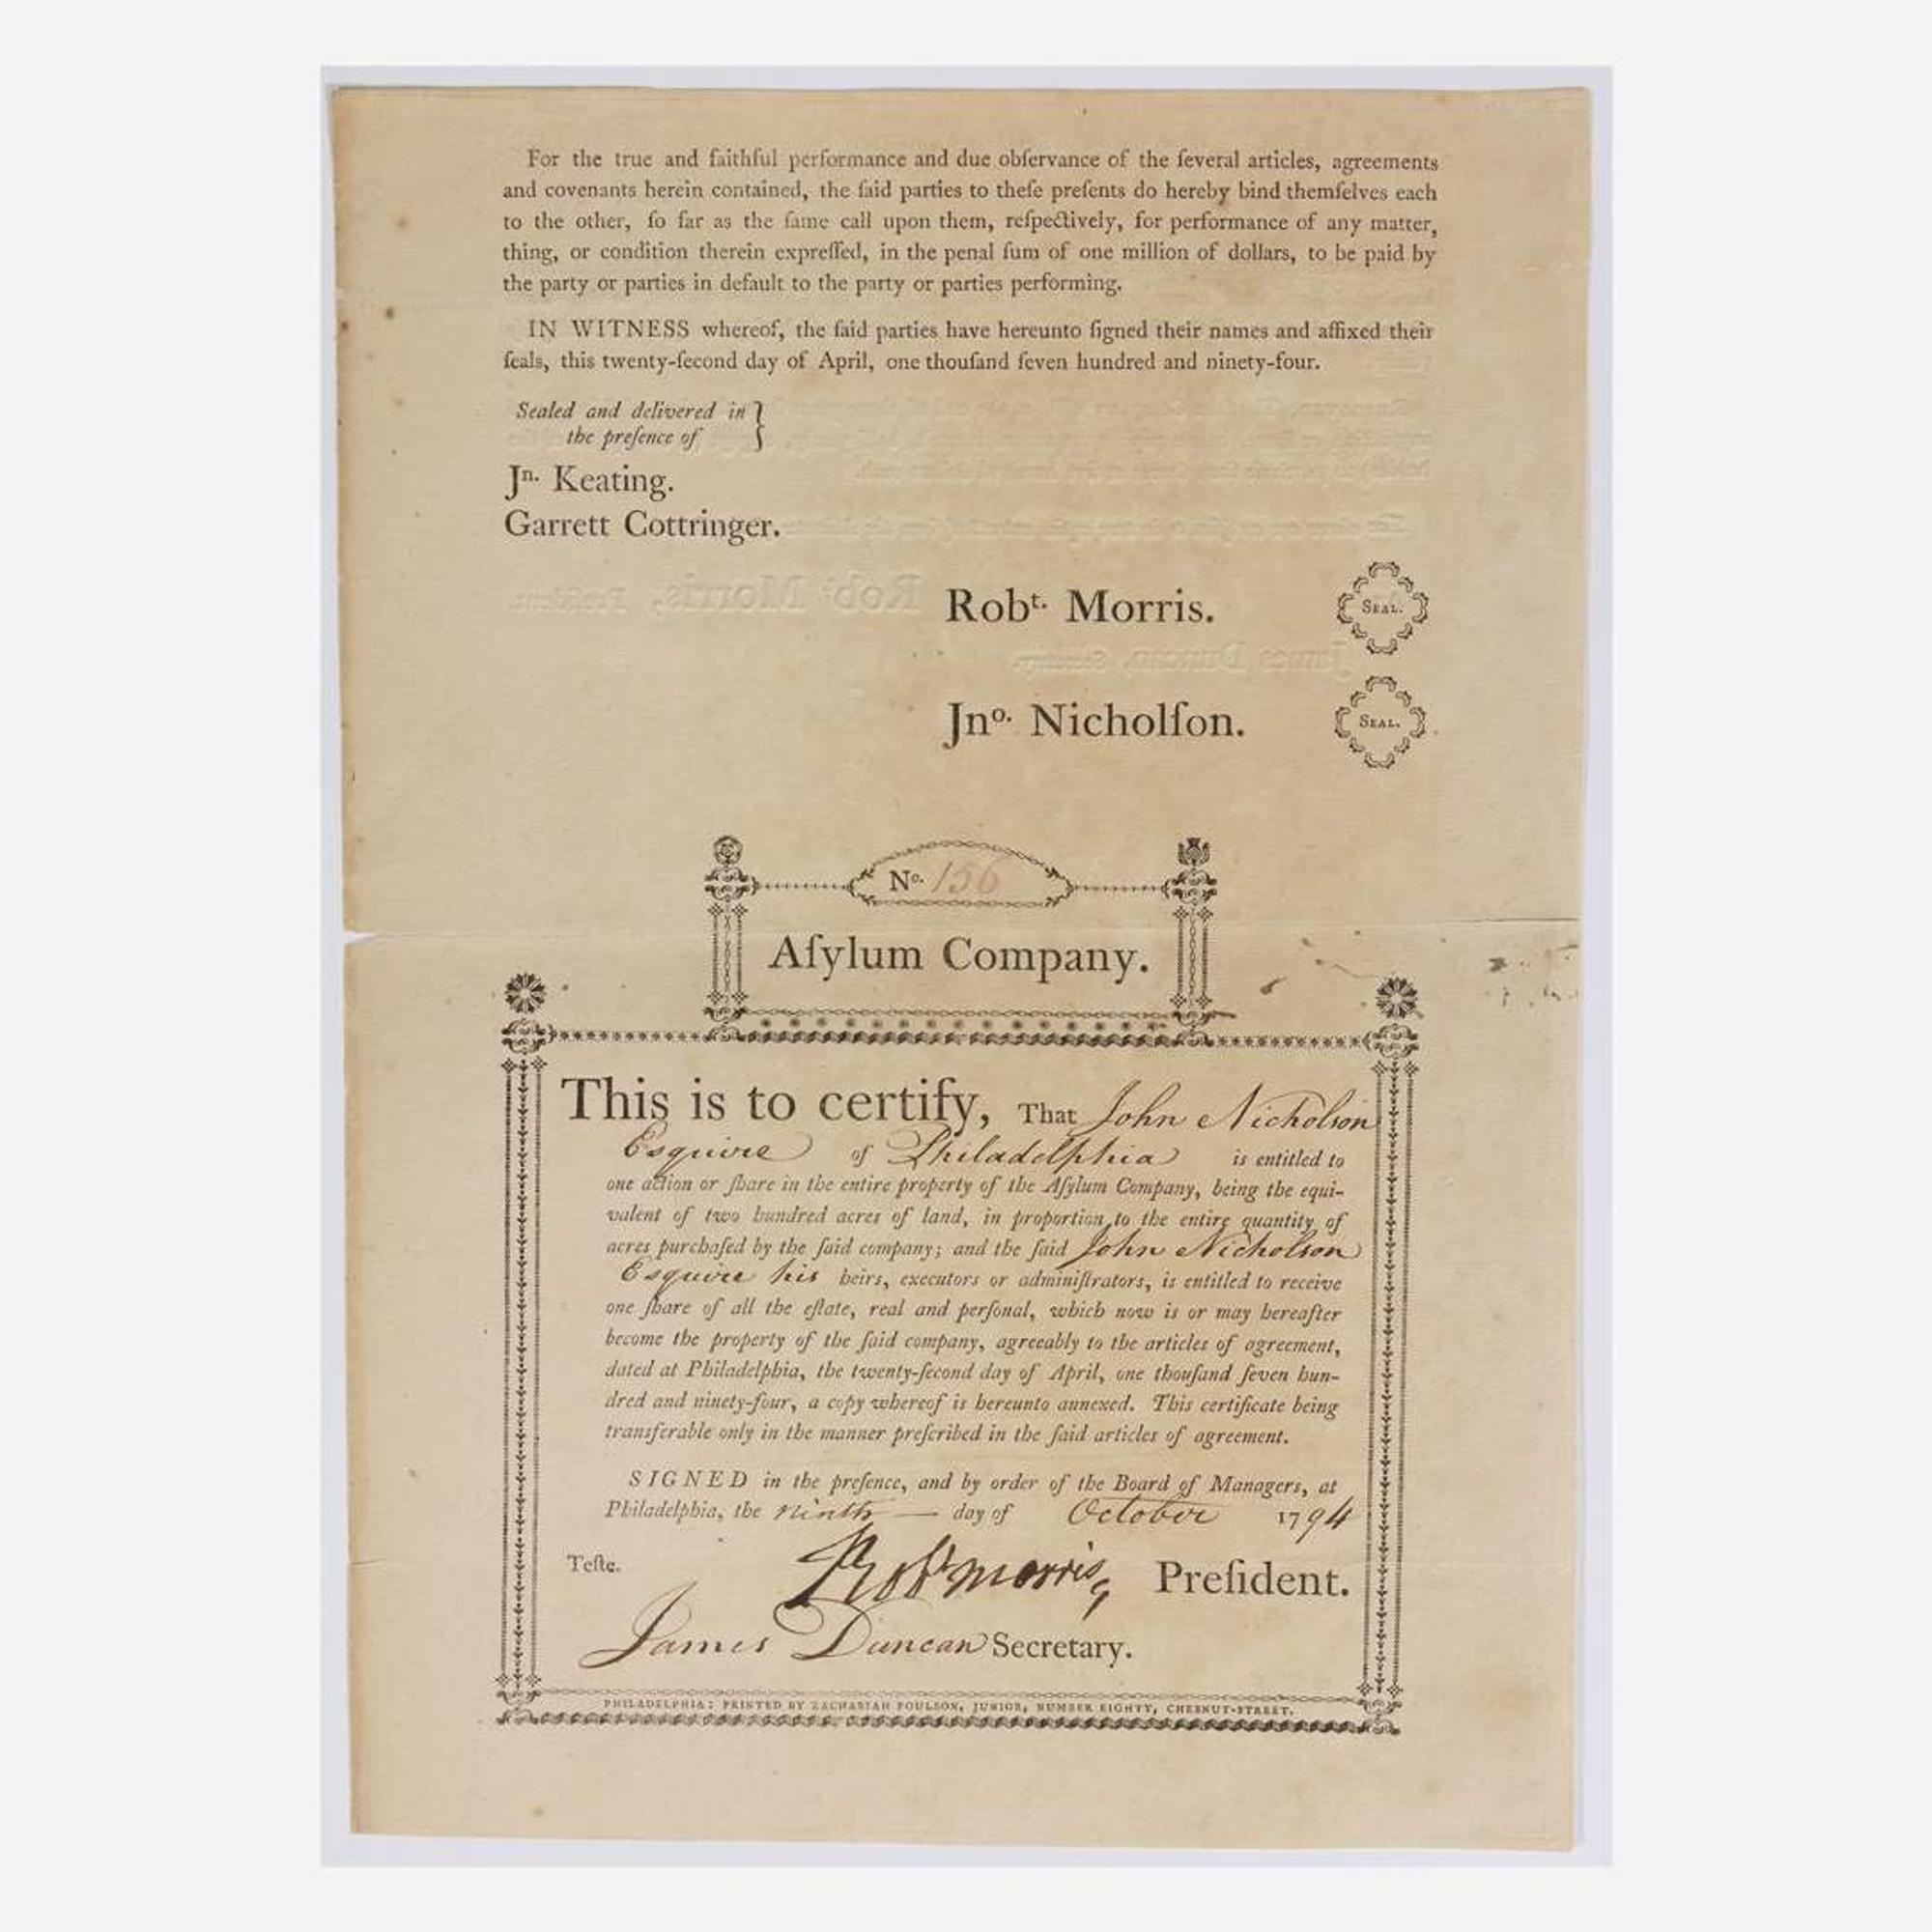 For the true and faithful performance and due obſervance of the ſeveral articles, agreements
and covenants herein contained, the ſaid parties to theſe preſents do hereby bind themſelves each
to the other, ſo far as the ſame call upon them, reſpectively, for performance of any matter,
thing, or condition therein expreſſed, in the penal ſum of one million of dollars, to be paid by
the party or parties in default to the party or parties performing.
IN WITNESS whereof, the ſaid parties have hereunto ſigned their names and affixed their
ſeals, this twenty-ſecond day of April, one thouſand ſeven hundred and ninety-four.
Sealed and delivered in }
the preſence of
Jn. Keating.
Garrett Cottringer.
Robt. Morris. SEAL.
Jno. Nicholſon. SEAL.
No. 156
Aſylum Company.
This is to certify, That John Nicholson
Esquire of Philadelphia is entitled to
one action or ſhare in the entire property of the Aſylum Company, being the equi-
valent of two hundred acres of land, in proportion to the entire quantity of
acres purchaſed by the ſaid company; and the ſaid John Nicholson
Esquire his heirs, executors or adminiſtrators, is entitled to receive
one ſhare of all the eſtate, real and perſonal, which now is or may hereafter
become the property of the ſaid company, agreeably to the articles of agreement,
dated at Philadelphia, the twenty-ſecond day of April, one thouſand ſeven hun-
dred and ninety-four, a copy whereof is hereunto annexed. This certificate being
transferable only in the manner preſcribed in the ſaid articles of agreement.
SIGNED in the preſence, and by order of the Board of Managers, at
Philadelphia, the ninth — day of October 1794
Teſte. Robt Morris, Preſident.
James Duncan Secretary.
PHILADELPHIA: PRINTED BY ZACHARIAH POULSON, JUNIOR, NUMBER EIGHTY, CHESNUT-STREET.